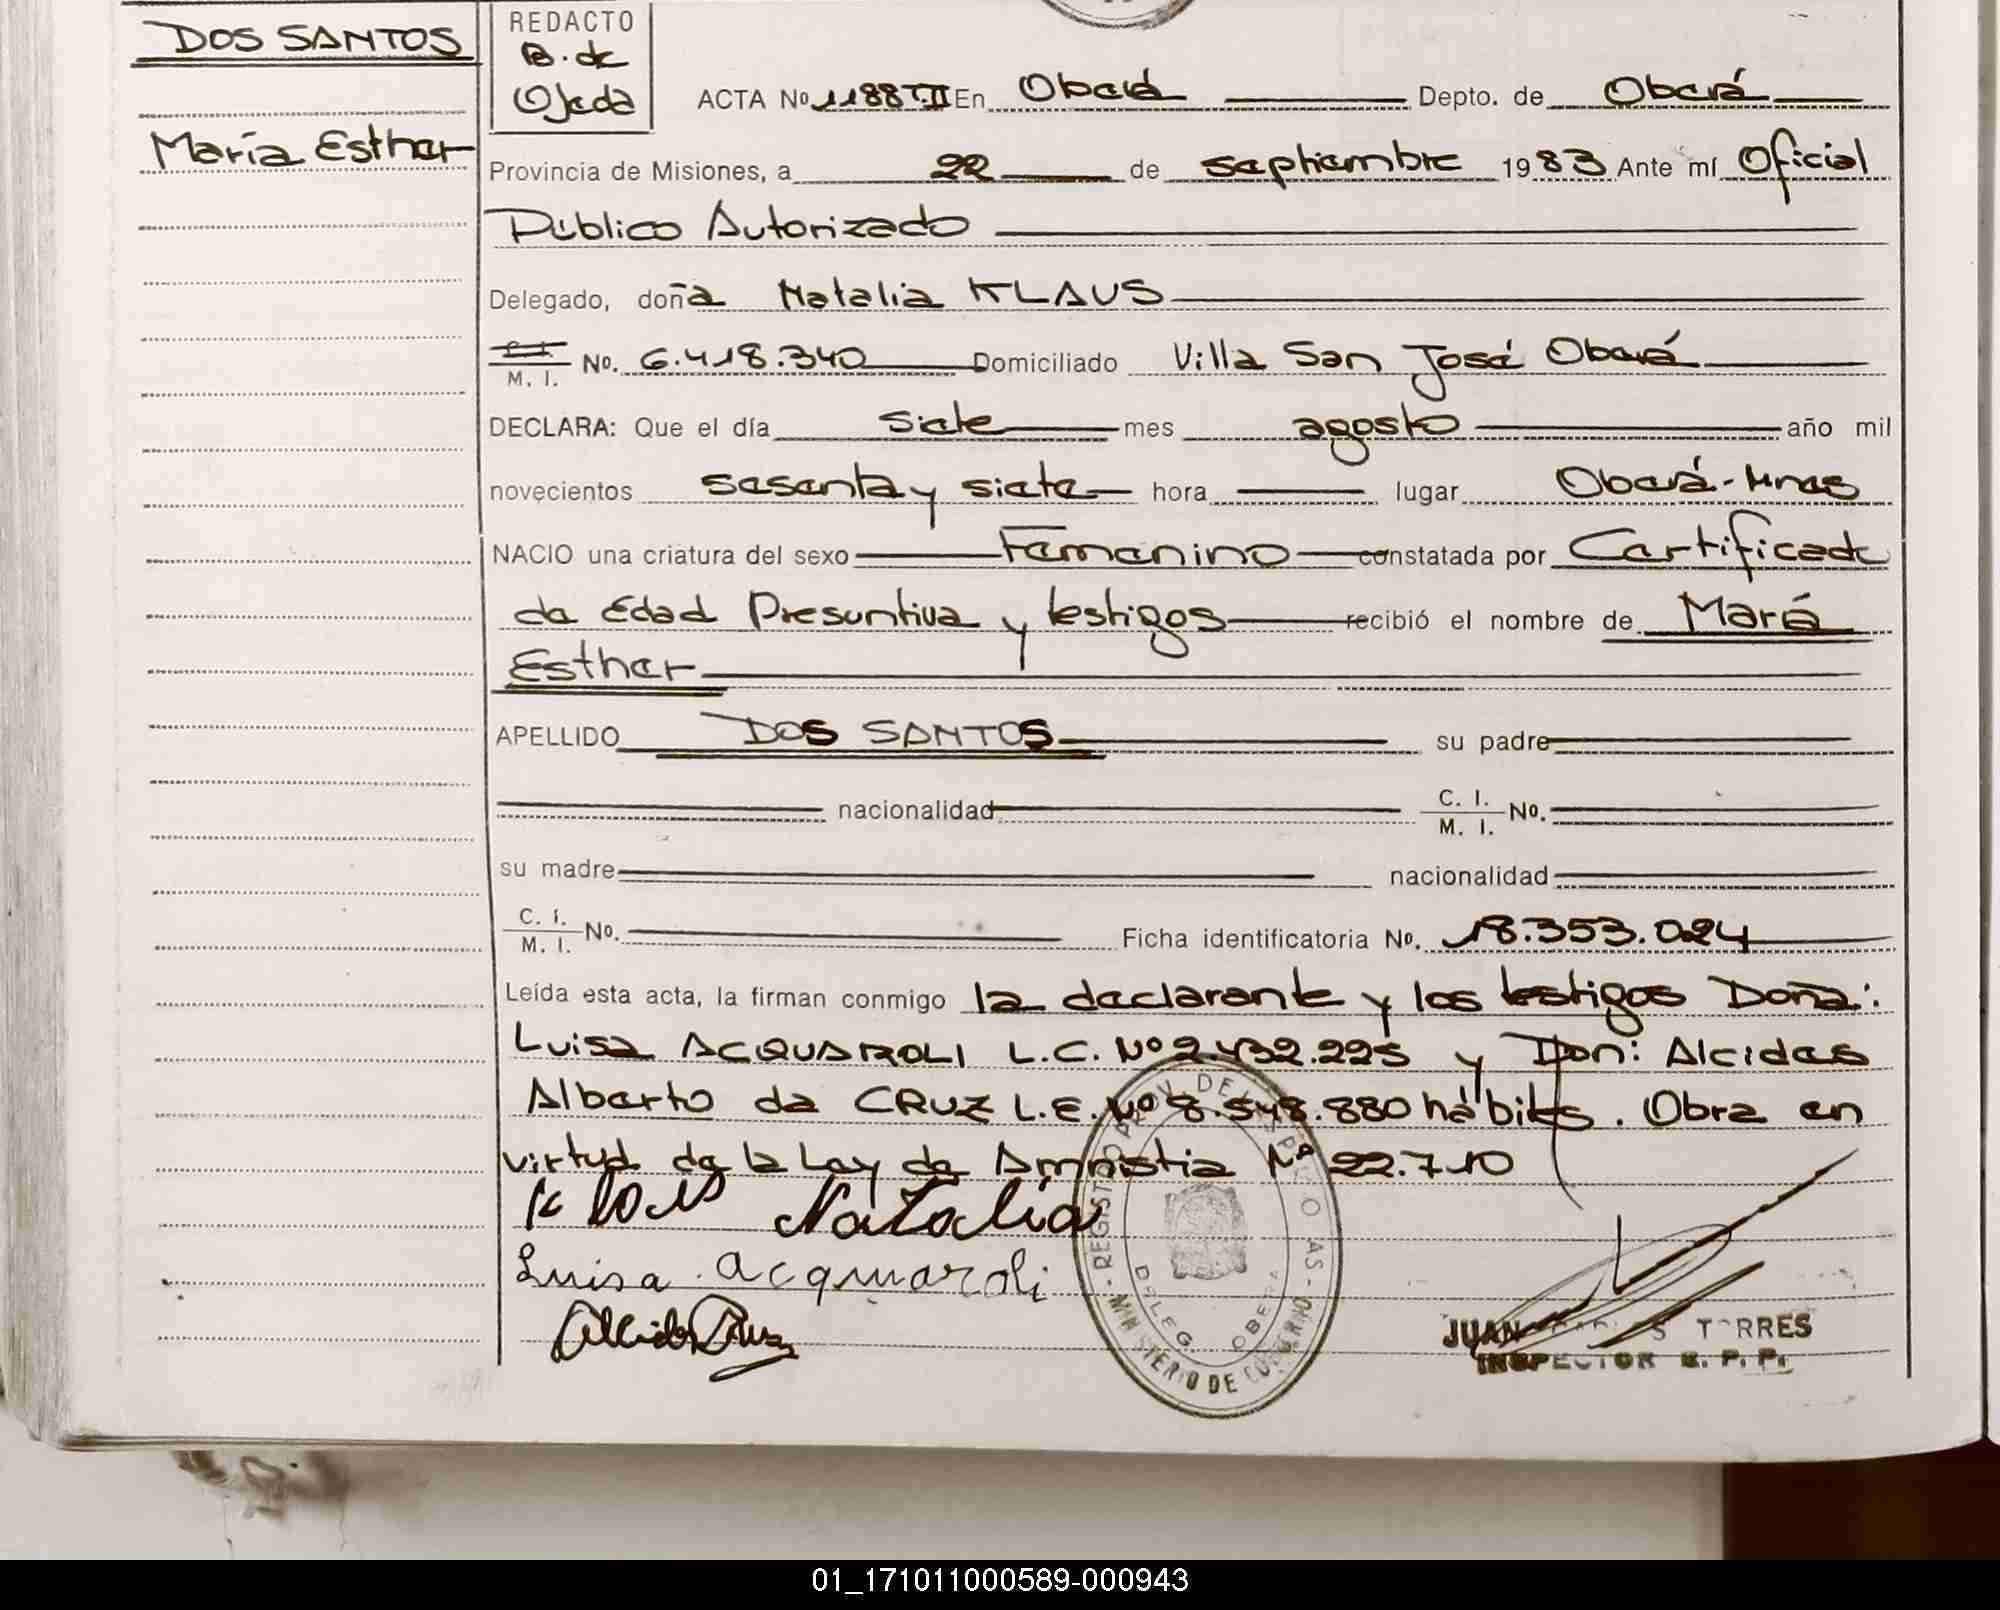 DOS SANTOS
María Esther
REDACTO
B. de
Ojeda
ACTA No 1188 T.II En Oberá Depto. de Oberá
Provincia de Misiones, a 22 de septiembre 1983 Ante mí Oficial
Público Autorizado
Delegado, doña Natalia KLAUS
C. I.
M. I. No. 6.418.340 Domiciliado Villa San José Oberá
DECLARA: Que el día siete mes agosto año mil
novecientos sesenta y siete hora lugar Oberá-Mnes
NACIO una criatura del sexo Femenino constatada por Certificado
de Edad Presuntiva y testigos recibió el nombre de María
Esther
APELLIDO DOS SANTOS su padre
nacionalidad C. I. M. I. No.
su madre nacionalidad
C. I. M. I. No. Ficha identificatoria No. 18.353.024
Leída esta acta, la firman conmigo la declarante y los testigos Doña:
Luisa ACQUAROLI L.C. Nº 2.432.225 y Don: Alcides
Alberto da CRUZ L.E. Nº 8.548.880 hábiles. Obra en
virtud de la Ley de Amnistia Nº 22.710
Natalia
Luisa Acquaroli
REGISTRO PROV. DE LAS PERSONAS
MINISTERIO DE GOBIERNO
DELEG. OBERA
JUAN CARLOS TORRES
INSPECTOR R. P. P.
01_171011000589-000943